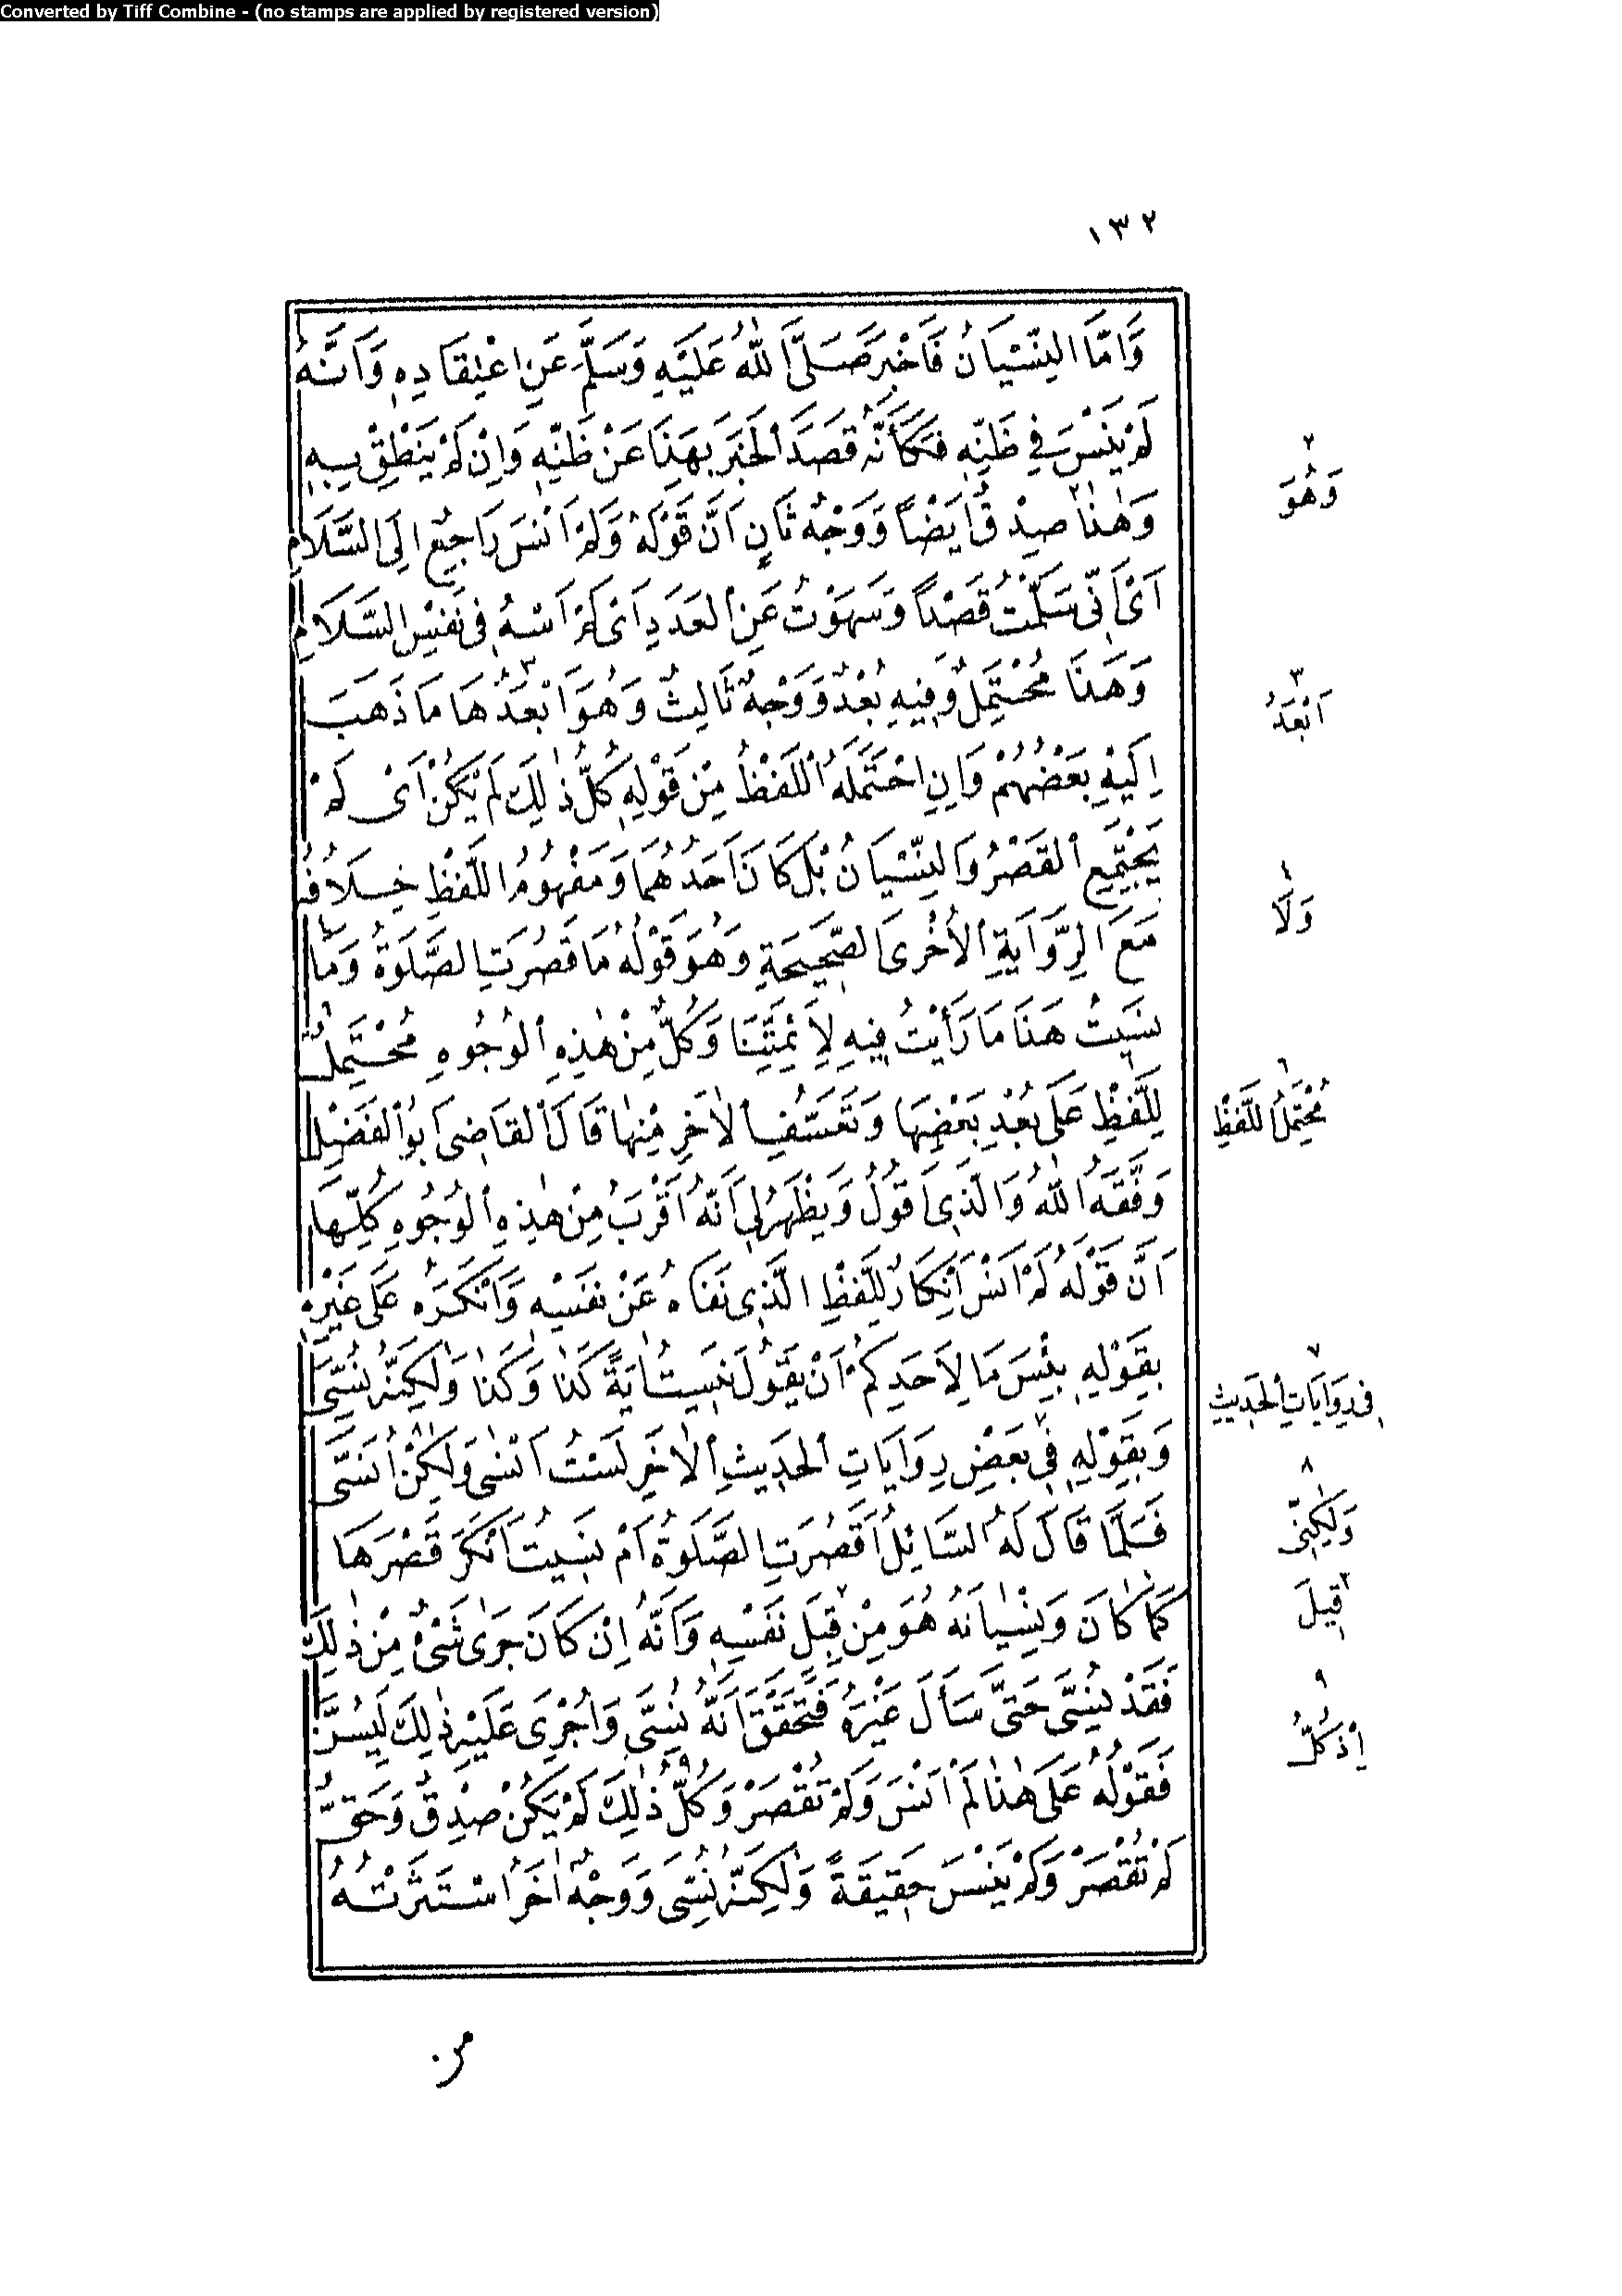 Converted by Tiff Combine - (no stamps are applied by registered version)
١٣٢
وَأَمَّا النِّسْيَانُ فَأَخْبَرَ صَلَّى اللهُ عَلَيْهِ وَسَلَّمَ عَنِ اعْتِقَادِهِ وَأَنَّهُ
لَمْ يَنْسَ فِي ظَنِّهِ فَكَأَنَّهُ قَصَدَ الْخَبَرَ بِهَذَا عَنْ ظَنِّهِ وَإِنْ لَمْ يَنْطِقْ بِهِ
وَهٰذَا صِدْقٌ أَيْضًا وَوَجْهٌ ثَانٍ أَنَّ قَوْلَهُ وَلَمْ أَنْسَ رَاجِعٌ إِلَى السَّلَامِ
أَيْ أَنِّي سَلَّمْتُ قَصْدًا وَسَهَوْتُ عَنِ الْعَدَدِ أَيْ لَمْ أَسْهُ فِي نَفْسِ السَّلَامِ
وَهَذَا مُحْتَمِلٌ وَفِيهِ بُعْدٌ وَوَجْهٌ ثَالِثٌ وَهُوَ أَبْعَدُهَا ٣ مَا ذَهَبَ
إِلَيْهِ بَعْضُهُمْ وَإِنِ احْتَمَلَهُ اللَّفْظُ مِنْ قَوْلِهِ كُلُّ ذٰلِكَ لَمْ يَكُنْ أَيْ لَمْ
يَجْتَمِعِ الْقَصْرُ وَالنِّسْيَانُ بَلْ كَانَ أَحَدُهُمَا وَمَفْهُومُ اللَّفْظِ خِلَافُهُ
مَعَ الرِّوَايَةِ الْأُخْرَى الصَّحِيحَةِ وَهُوَ قَوْلُهُ مَا قَصُرَتِ الصَّلَوةُ وَمَا ٤
نَسِيتُ هَذَا مَا رَأَيْتُ فِيهِ لِأَئِمَّتِنَا وَكُلٌّ مِنْ هٰذِهِ الْوُجُوهِ مُحْتَمِلٌ ٦
لِلَّفْظِ عَلَى بُعْدِ بَعْضِهَا وَتَعَسُّفِ الْآخَرِ مِنْهَا قَالَ الْقَاضِي أَبُو الْفَضْلِ
وَفَّقَهُ اللهُ وَالَّذِي أَقُولُ وَيَظْهَرُ لِي أَنَّهُ أَقْرَبُ مِنْ هٰذِهِ الْوُجُوهِ كُلِّهَا
أَنَّ قَوْلَهُ لَمْ أَنْسَ إِنْكَارٌ لِلَّفْظِ الَّذِي نَفَاهُ عَنْ نَفْسِهِ وَأَنْكَرَهُ عَلَى غَيْرِهِ
بِقَوْلِهِ بِئْسَ مَا لِأَحَدِكُمْ أَنْ يَقُولَ نَسِيتُ آيَةَ كَذَا وَكَذَا وَلٰكِنَّهُ نُسِّيَ
وَبِقَوْلِهِ فِي بَعْضِ ٧ رِوَايَاتِ الْحَدِيثِ الْآخَرِ لَسْتُ أَنْسٰى وَلٰكِنْ ٨ أُنَسَّى
فَلَمَّا قَالَ لَهُ السَّائِلُ أَقَصُرَتِ الصَّلَوةُ أَمْ نَسِيتَ أَنْكَرَ قَصْرَهَا
كَمَا كَانَ وَنِسْيَانَهُ هُوَ مِنْ ٢ قِبَلِ نَفْسِهِ وَأَنَّهُ إِنْ كَانَ جَرَى شَيْءٌ مِنْ ذٰلِكَ
فَقَدْ نُسِّيَ حَتَّى سَأَلَ غَيْرَهُ فَتَحَقَّقَ أَنَّهُ نُسِّيَ وَأُجْرِيَ عَلَيْهِ ذٰلِكَ لِيَسُنَّ
فَقَوْلُهُ عَلَى هٰذَا لَمْ أَنْسَ وَلَمْ تُقْصَرْ وَكُلُّ ٩ ذٰلِكَ لَمْ يَكُنْ صِدْقٌ وَحَقٌّ
لَمْ تُقْصَرْ وَلَمْ يَنْسَ حَقِيقَةً وَلٰكِنَّهُ نُسِّيَ وَوَجْهٌ آخَرُ اسْتَثَرْتُهُ
٢
وَهُوَ
٣
أَبْعَدُ
٤
وَلَا
٦
مُحْتَمِلُ اللَّفْظِ
٧
فِي رِوَايَاتِ الْحَدِيثِ
٨
وَلٰكِنِّي
٢
قِيلَ
٩
إِذْ كُلُّ
من